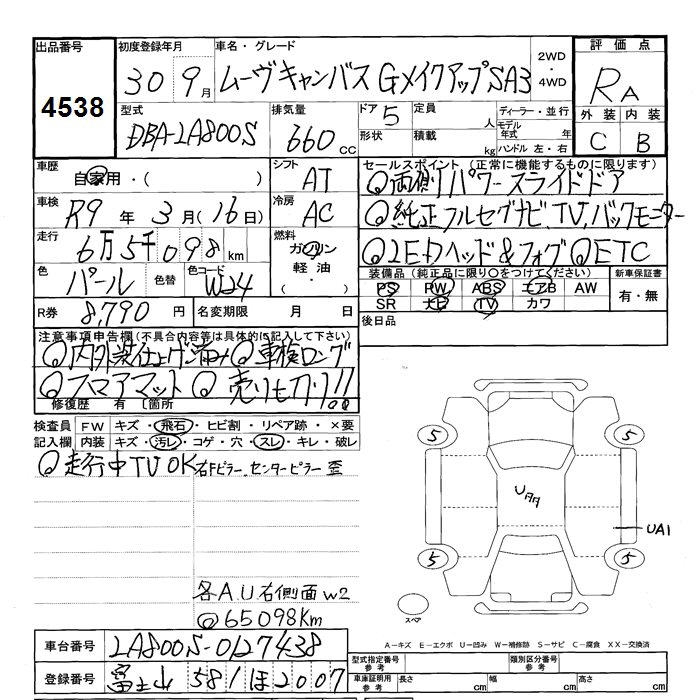 出品番号
4538
初度登録年月
30 9月
車名・グレード
ムーヴキャンバス GメイクアップSA3
2WD・4WD
評価点
RA
外装 内装
C B
型式
DBA-LA800S
排気量
660cc
ドア 5
定員 人
形状
積載 kg
ディーラー・並行
モデル年式 年
ハンドル 左・右
車歴
自家用・( )
シフト
AT
車検
R9年3月(16日)
冷房
AC
走行
6万5千098km
燃料
ガソリン
軽油・
( )
色
パール
色替
色コード
W24
R券 8,790円
名変期限 月 日
セールスポイント(正常に機能するものに限ります)
◎両側パワースライドドア
◎純正フルセグナビ、TV、バックモニター
◎LEDヘッド&フォグ ◎ETC
装備品(純正品に限り○をつけてください)
PS PW ABS エアB AW
SR ナビ TV カワ
新車保証書
有・無
後日品
注意事項申告欄(不具合内容等は具体的に記入して下さい)
◎内外装仕上げ済み ◎車検ロング
◎フロアマット ◎売り切り!!
修復歴 有 [箇所
検査員記入欄
FW キズ・飛石・ヒビ割・リペア跡・×要
内装 キズ・汚レ・コゲ・穴・スレ・キレ・破レ
◎走行中TVOK 右Fピラー、センターピラー 歪
各A.U右側面W2
@65098Km
5 5
UAA
UA1
5 5
スペア
A－キズ E－エクボ U－凹み W－補修跡 S－サビ C－腐食 XX－交換済
車台番号 LA800S-0127438
登録番号 富士山 581 ほ 2007
型式指定番号 参考
類別区分番号 参考
車庫証明用 参考
長さ cm 幅 cm 高さ cm